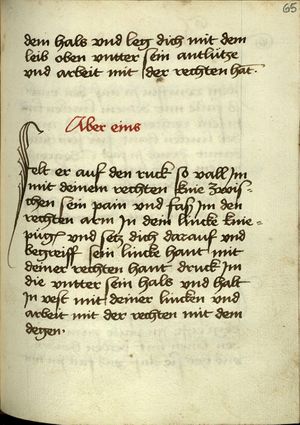 65
dem hals vnd leg dich mit dem
leib oben vntter sein antlütze
vnd arbeit mit der rechten hat.
Aber eins
Felt er auf den ruck so vall Im
mit deinem rechten knie Zwis-
chen sein pain vnd fass Im den
rechten arm In dem lincke knie-
püg vnd setz dich darauf vnd
begreiff sein lincke hant mit
deiner rechten hant druck Im
die vntter sein hals vnd halt
In vest mit deiner lincken vnd
arbeit mit der rechten mit dem
degen.